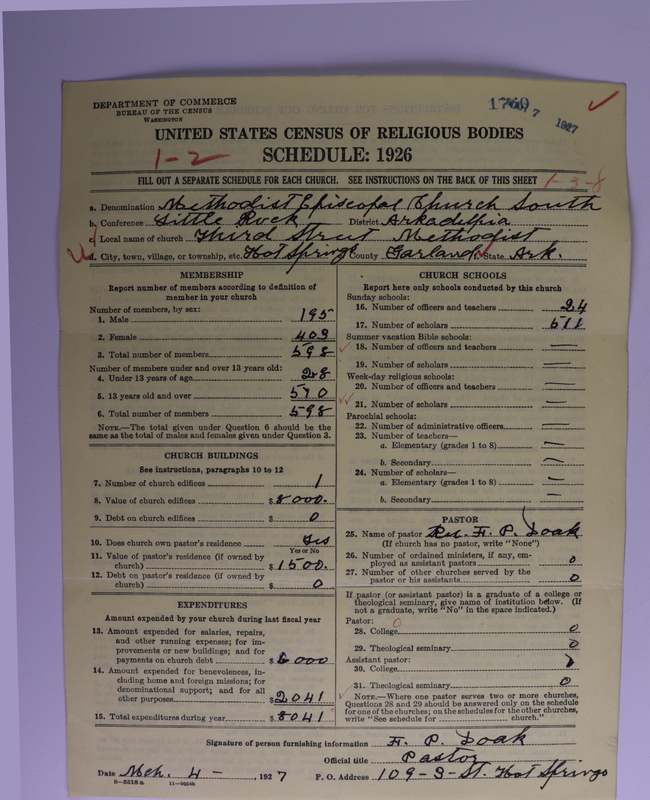 DEPARTMENT OF COMMERCE
BUREAU OF THE CENSUS
WASHINGTON
7 1927
UNITED STATES CENSUS OF RELIGIOUS BODIES
1-2
SCHEDULE: 1926
FILL OUT A SEPARATE SCHEDULE FOR EACH CHURCH. SEE INSTRUCTIONS ON THE BACK OF THIS SHEET
1-3-8
a. Denomination Methodist Episcopal Church South
b. Conference Little Rock District Arkadelpia
c. Local name of church Third Street Methodist
d. City, town, village, or township, etc. Hot Springs County Garland State Ark.
MEMBERSHIP
Report number of members according to definition of
member in your church
Number of members, by sex:
1. Male 195
2. Female 403
3. Total number of members 598
Number of members under and over 13 years old:
4. Under 13 years of age 28
5. 13 years old and over 570
6. Total number of members 598
NOTE.—The total given under Question 6 should be the
same as the total of males and females given under Question 3.
CHURCH BUILDINGS
See instructions, paragraphs 10 to 12
7. Number of church edifices 1
8. Value of church edifices $8000.
9. Debt on church edifices $ 0
10. Does church own pastor's residence yes
Yes or No
11. Value of pastor's residence (if owned by
church) $1500.
12. Debt on pastor's residence (if owned by
church) $ 0
EXPENDITURES
Amount expended by your church during last fiscal year
13. Amount expended for salaries, repairs,
and other running expenses; for im-
provements or new buildings; and for
payments on church debt $6000
14. Amount expended for benevolences, in-
cluding home and foreign missions; for
denominational support; and for all
other purposes $2041
15. Total expenditures during year $8041
CHURCH SCHOOLS
Report here only schools conducted by this church
Sunday schools:
16. Number of officers and teachers 24
17. Number of scholars 511
Summer vacation Bible schools:
18. Number of officers and teachers —
19. Number of scholars —
Week-day religious schools:
20. Number of officers and teachers —
21. Number of scholars —
Parochial schools:
22. Number of administrative officers —
23. Number of teachers—
a. Elementary (grades 1 to 8) —
b. Secondary —
24. Number of scholars—
a. Elementary (grades 1 to 8) —
b. Secondary —
PASTOR
25. Name of pastor Rev. F. P. Doak
(If church has no pastor, write "None")
26. Number of ordained ministers, if any, em-
ployed as assistant pastors 0
27. Number of other churches served by the
pastor or his assistants 0
If pastor (or assistant pastor) is a graduate of a college or
theological seminary, give name of institution below. (If
not a graduate, write "No" in the space indicated.)
Pastor: 0
28. College 0
29. Theological seminary 0
Assistant pastor:
30. College 0
31. Theological seminary 0
NOTE.—Where one pastor serves two or more churches,
Questions 28 and 29 should be answered only on the schedule
for one of the churches; on the schedules for the other churches,
write "See schedule for church."
Signature of person furnishing information F. P. Doak
Official title Pastor
Date Mch. 4 —, 1927 P. O. Address 109-3-St. Hot Springs